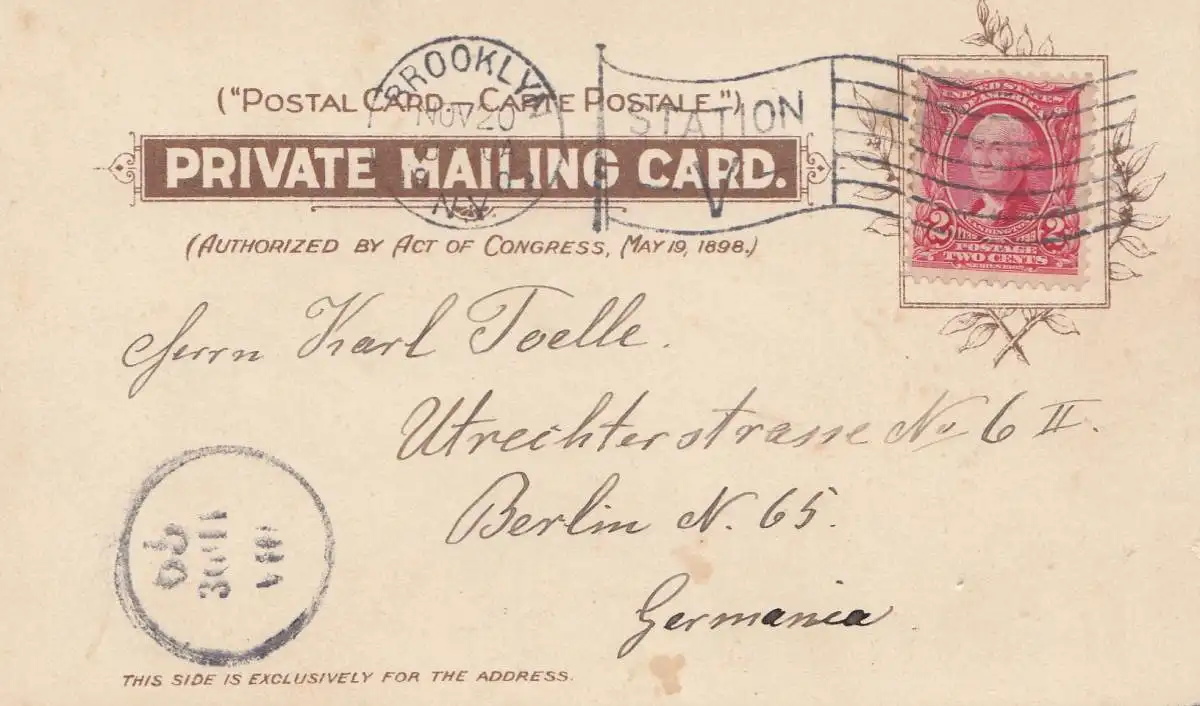 BROOKLYN
NOV 20
N.Y.
STATION
V
("POSTAL CARD — CARTE POSTALE.")
PRIVATE MAILING CARD.
(AUTHORIZED BY ACT OF CONGRESS, MAY 19, 1898.)
UNITED STATES
OF AMERICA
2 WASHINGTON 2
POSTAGE
TWO CENTS
SERIES 1902
Herrn Karl Toelle.
Utrechterstrasse No 6 II.
Berlin N. 65.
Germania
THIS SIDE IS EXCLUSIVELY FOR THE ADDRESS.